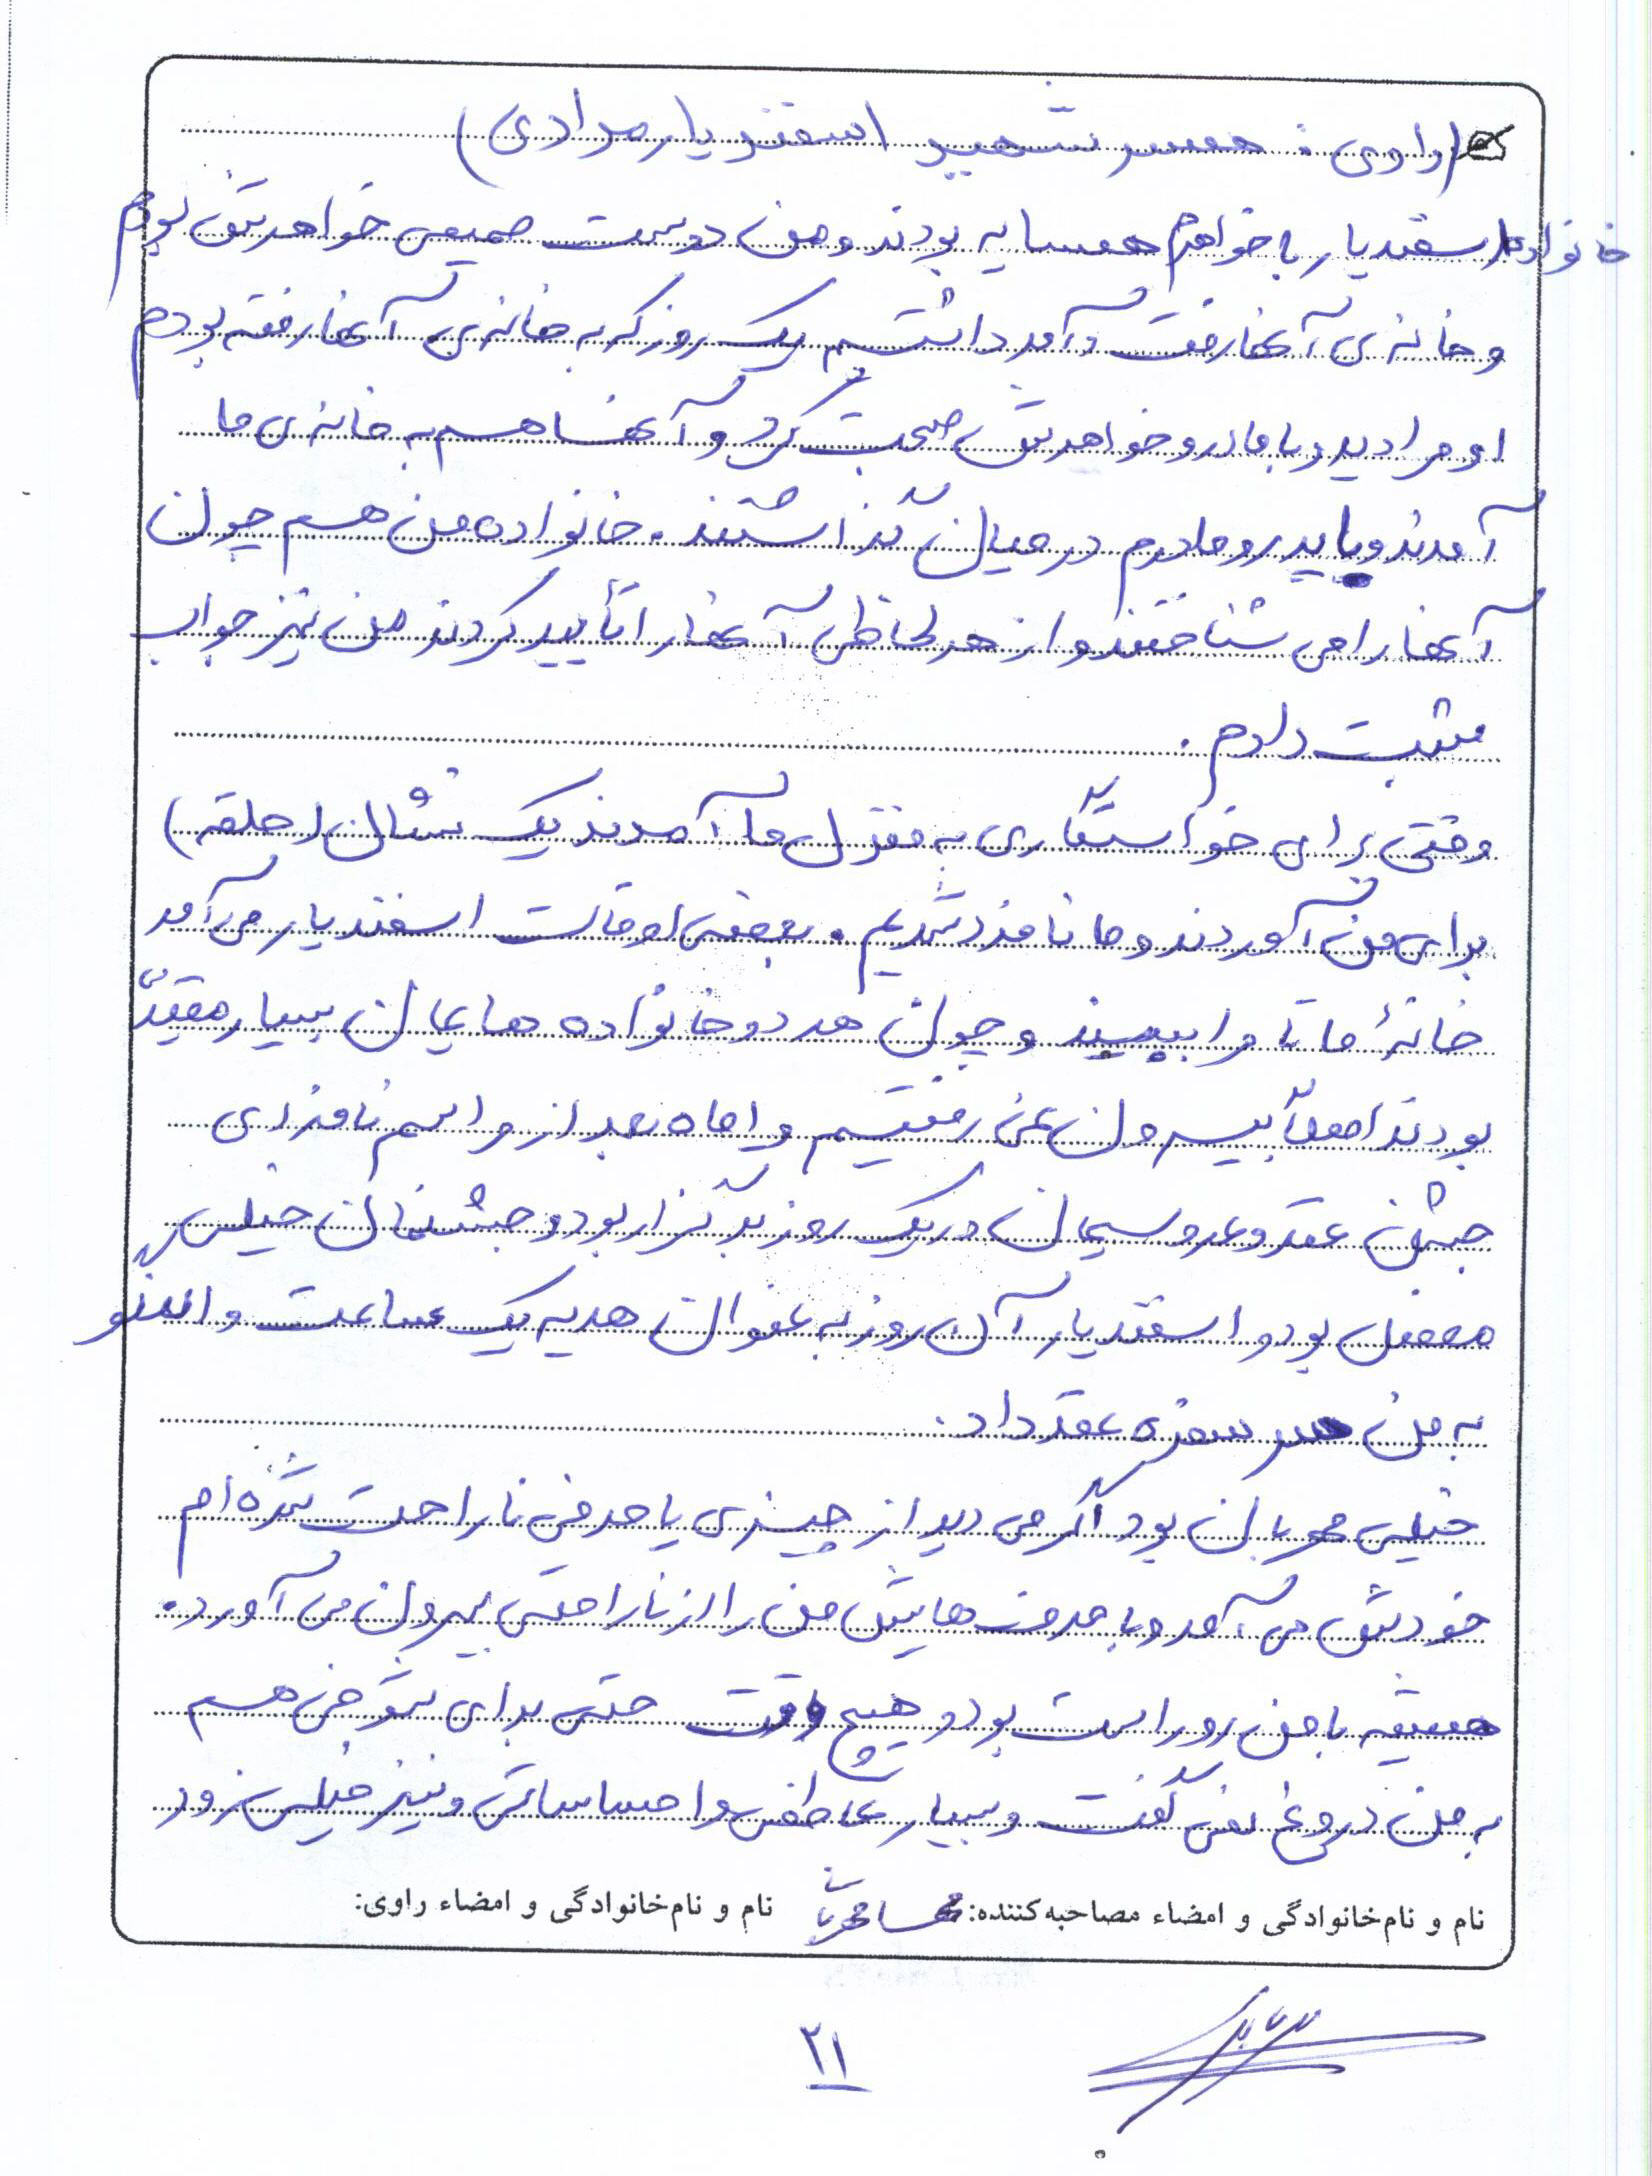 (راوی: همسر شهید اسفندیار مرادی)
خانواده اسفندیار با خواهرم همسایه بودند و من دوست صمیمی خواهرش بودم
و خانه‌ی آنها رفت و آمد داشتیم یک روز که به خانه‌ی آنها رفته بودم
او مرا دید و با مادر و خواهرش صحبت کرد و آنها هم به خانه‌ی ما
آمدند و با پدر و مادرم در میان گذاشتند. خانواده من هم چون
آنها را می شناختند و از هر لحاظی آنها را تأیید کردند من نیز جواب
مثبت دادم.
وقتی برای خواستگاری به منزل ما آمدند یک نشان (حلقه)
برای من آوردند و ما نامزد شدیم. بعضی اوقات اسفندیار می آمد
خانۀ ما تا مرا ببیند و چون هر دو خانواده هایمان بسیار مقیّد
بودند اصلاً بیرون نمی رفتیم و ماه بعد از مراسم نامزدی
جشن عقد و عروسیمان در یک روز برگزار بود و جشنمان خیلی
مفصل بود و اسفندیار آن روز به عنوان هدیه یک ساعت و النگو
به من سر سفره عقد داد.
خیلی مهربان بود اگر می دید از چیزی یا حرفی ناراحت شده ام
خودش می آمد و با حرف هایش من را از ناراحتی بیرون می آورد.
همیشه با من رو راست بود و هیچ وقت حتی برای شوخی هم
به من دروغ نمی گفت و بسیار عاطفی و احساساتی و نیز خیلی زود
نام و نام‌خانوادگی و امضاء مصاحبه‌کننده: نام و نام‌خانوادگی و امضاء راوی:
۲۱